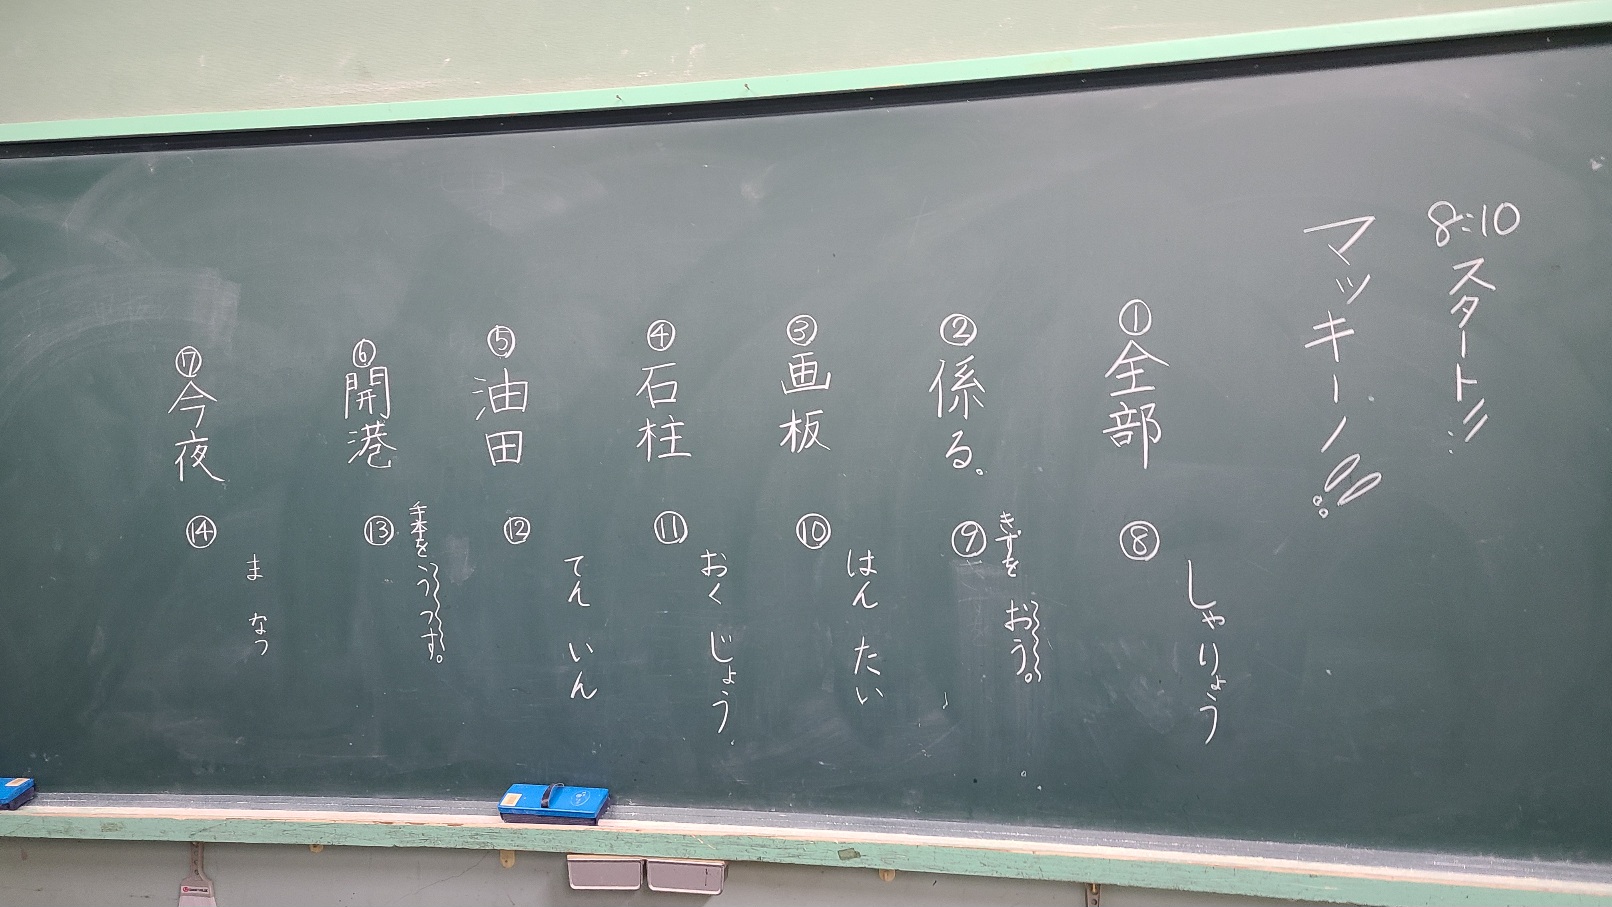 8:10スタート!!
マッキーノ!!
①全部
②係る。
③画板
④石柱
⑤油田
⑥開港
⑦今夜
⑧しゃりょう
⑨きずをおう。
⑩はんたい
⑪おくじょう
⑫てんいん
⑬手本をうつす。
⑭まなつ